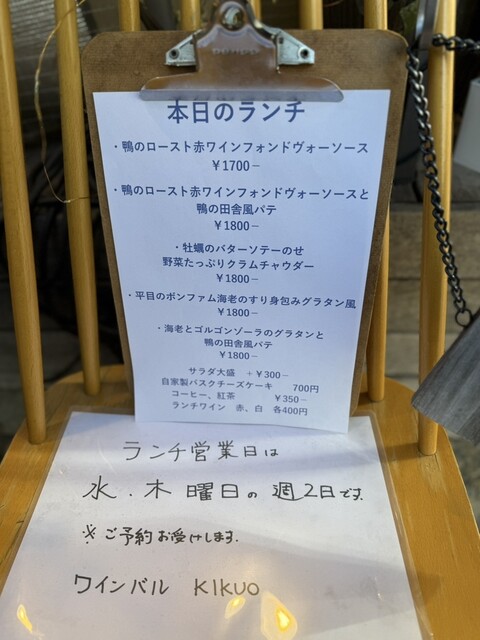 本日のランチ
・鴨のロースト赤ワインフォンドヴォーソース
￥1700－
・鴨のロースト赤ワインフォンドヴォーソースと
鴨の田舎風パテ
￥1800－
・牡蠣のバターソテーのせ
野菜たっぷりクラムチャウダー
￥1800－
・平目のボンファム海老のすり身包みグラタン風
￥1800－
・海老とゴルゴンゾーラのグラタンと
鴨の田舎風パテ
￥1800－
サラダ大盛　＋￥300－
自家製バスクチーズケーキ　700円
コーヒー、紅茶　￥350－
ランチワイン　赤、白　各400円
ランチ営業日は
水．木 曜日の 週2日です.
※ご予約お受けします.
ワインバル KIKUO